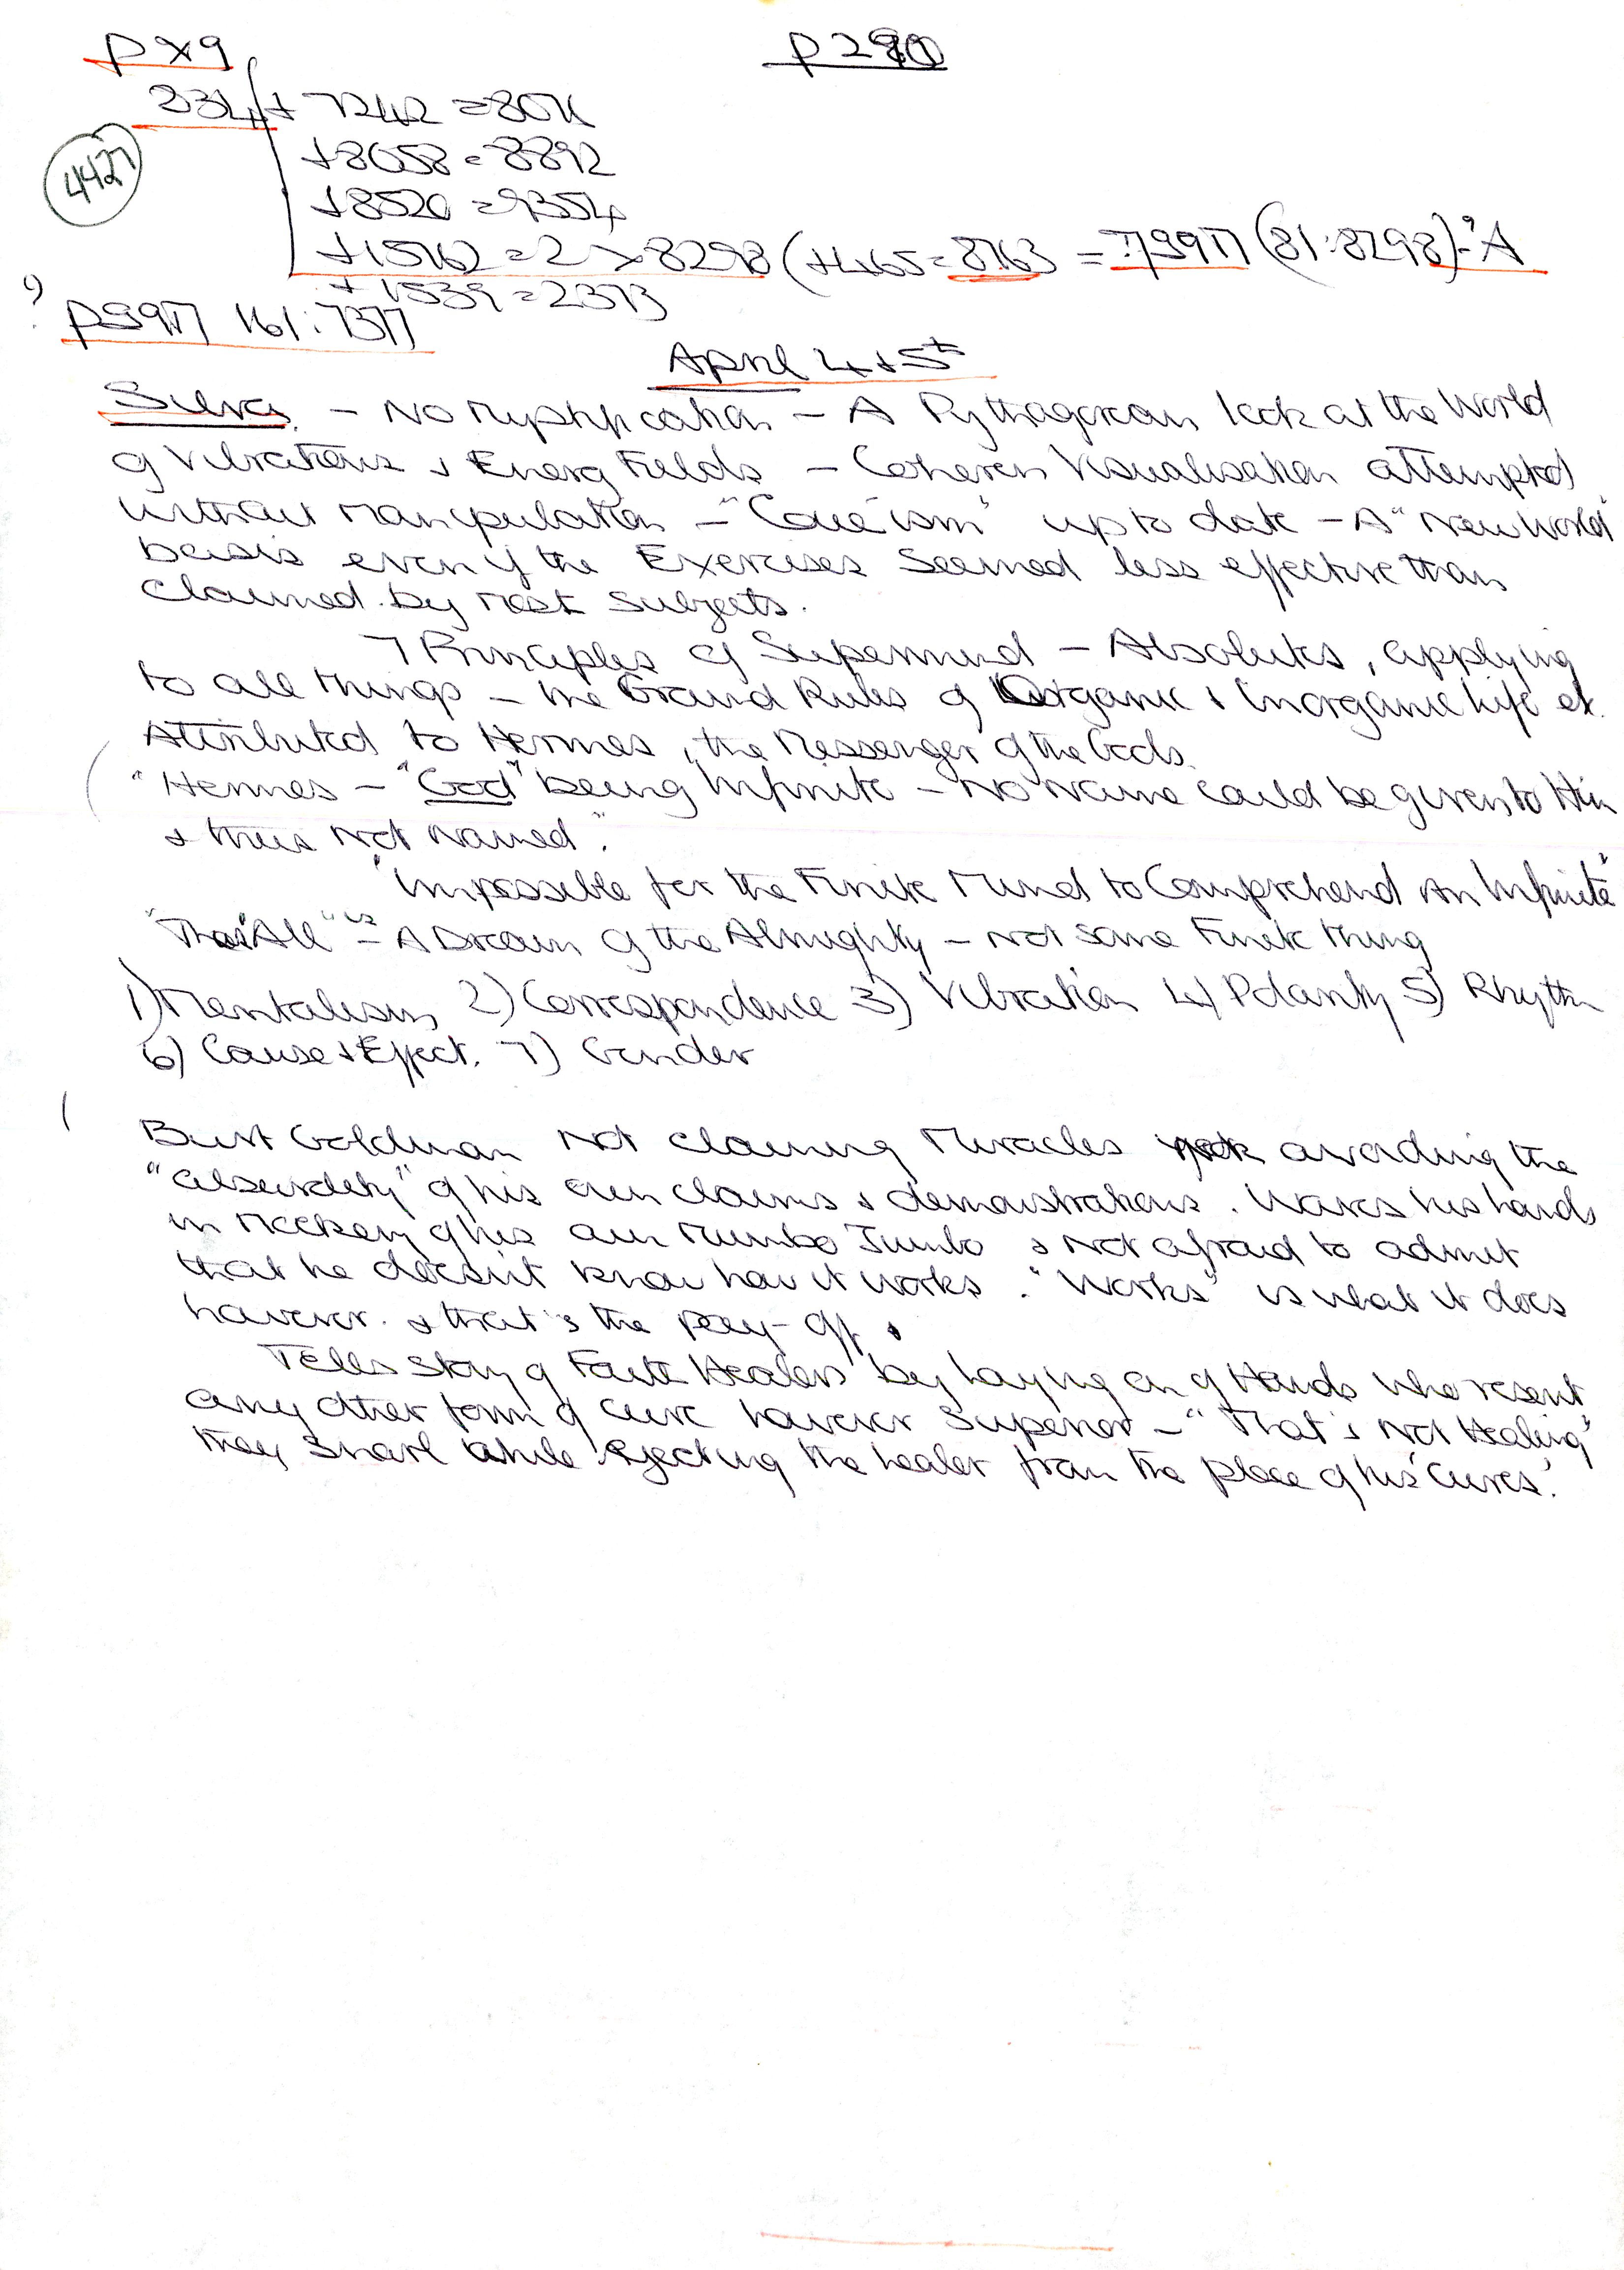 P X 9
P 290
834 + 7242 = 8076
4427
+ 8058 = 8892
+ 8520 = 9354
+ 15762 = 2 X 8298 (+465 = 8763 = (81:8298) - "A
+ 1539 = 2373
? 161:7377
April 4 + 5th
Silva - No Mystification - A Pythagorean look at the World
of Vibrations + Energ Fields - Coheren Visualisation attempted
without Manipulation - "Coueism" up to date - A "New World"
basis even if the Exercises Seemed less effective than
Claimed by most Subjects.
7 Principles of Supermind - Absolutes, applying
to all things - the Grand Rules of Organic + Inorganic Life et.
Attributed to Hermes, the Messenger of the Gods.
("Hermes - "God" being Infinite - No Name could be given to Him
+ thus Not Named".
"Impossible for the Finite Mind to Comprehend An Infinite"
"The "All" is - A Dream of the Almighty - not some Finite thing
1) Mentalism 2) Correspondence 3) Vibration 4) Polarity 5) Rhythm
6) Cause + Effect. 7) Gender
Burt Goldman Not claiming Miracles avoiding the
"absurdity" of his own claims + demonstrations. Waves his hands
in Mockery of his own Mumbo Jumbo + Not afraid to admit
that he doesn't know how it works. "Works" is what it does
however. + that's the pay-off.
Tells story of Faith Healers by laying on of Hands who resent
any other form of cure however Superior - "That's Not Healing"
they Snarl while ejecting the healer from the place of his 'Cures'.